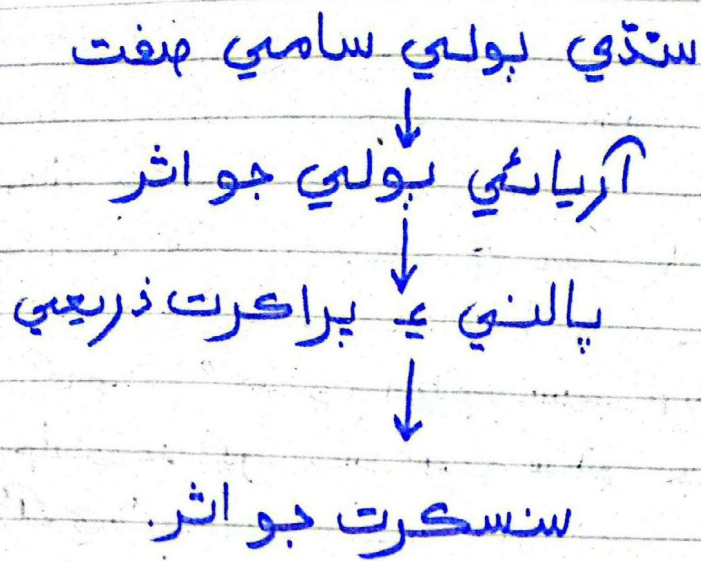 سنڌي ٻولي سامي صفت
↓
آريائي ٻولي جو اثر
↓
پالي ۽ پراڪرت ذريعي
↓
سنسڪرت جو اثر.